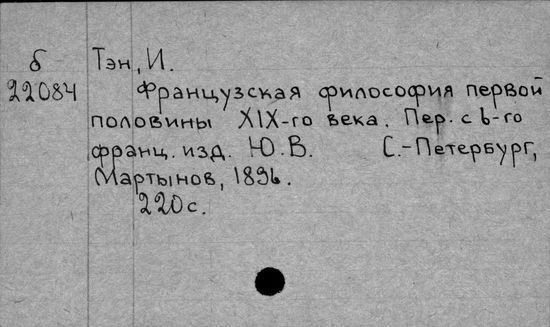 б Тэн, И.
22084 Французская философия первой
половины XIX-го века. Пер. с 6-го
франц. изд. Ю.В. С.-Петербург,
Мартынов, 1896.
220 с.